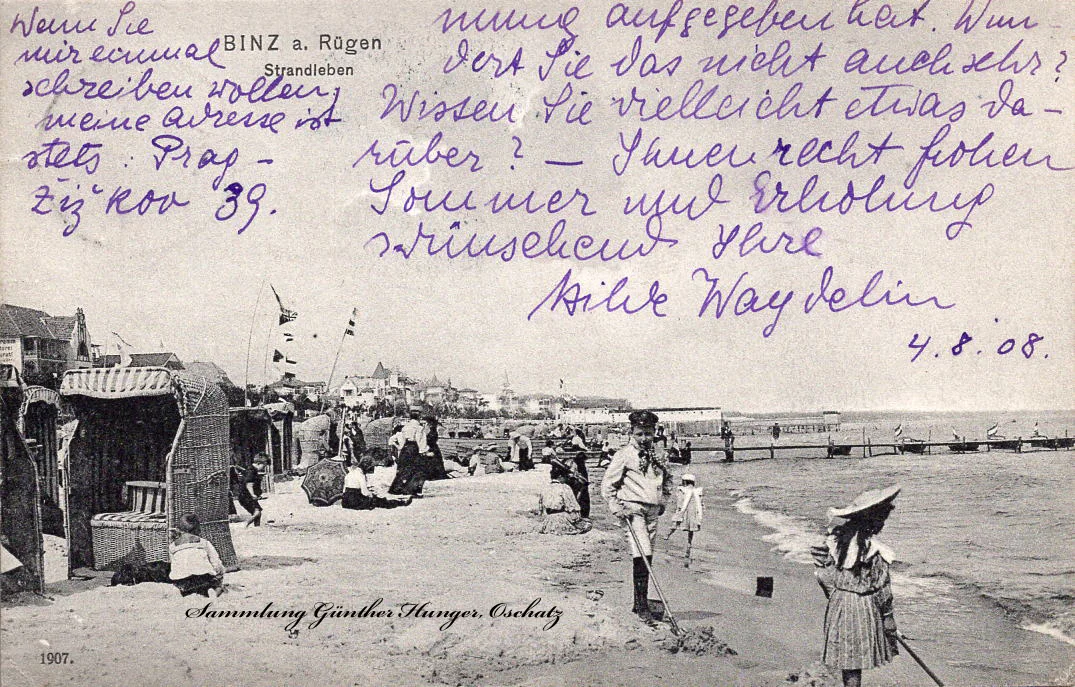 Wenn Sie
mir einmal
schreiben wollen,
meine Adresse ist
stets : Prag -
Žižkov 39.
BINZ a. Rügen
Strandleben
nung aufgegeben hat. Wun-
dert Sie das nicht auch sehr?
Wissen Sie vielleicht etwas da-
rüber? — Ihnen recht frohen
Sommer und Erholung
wünschend Ihre
Hilde Waydelin
4.8.08.
Sammlung Günther Hunger, Oschatz
1907.